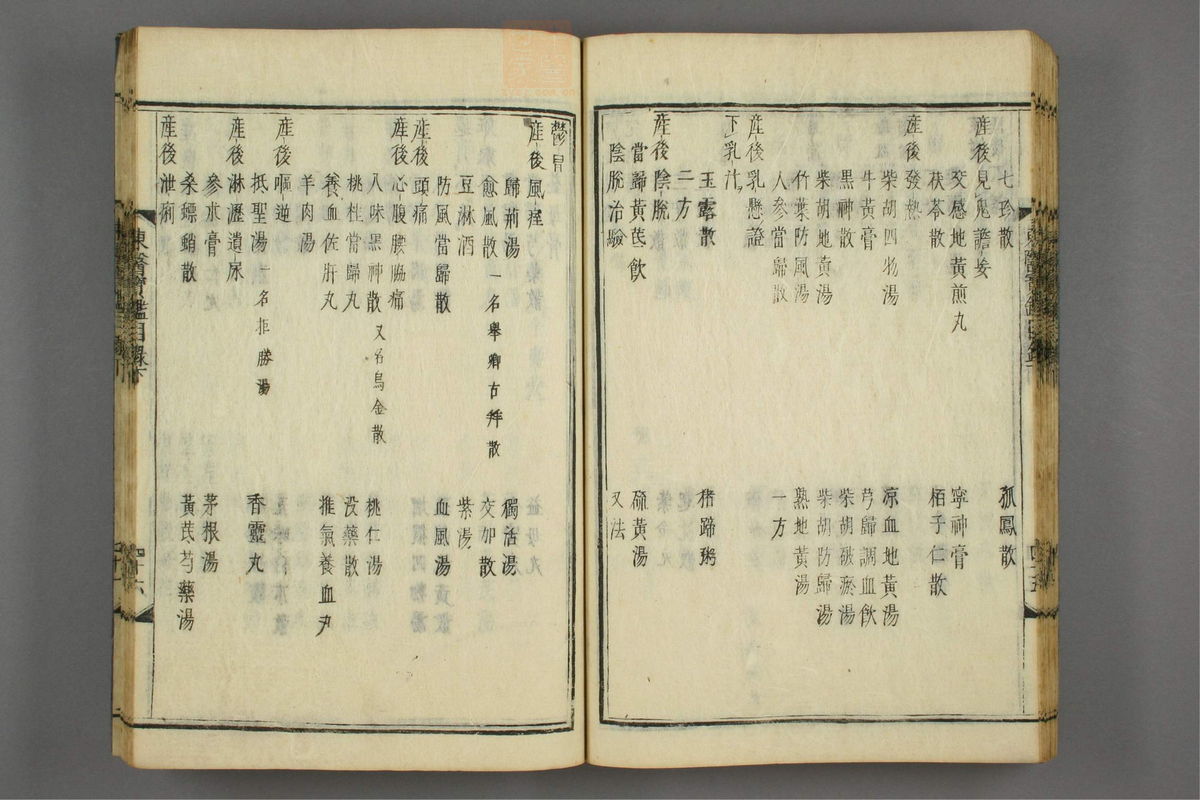 七珍散　狐鳳散
産後見鬼譫妄
交感地黃煎丸　寧神膏
茯苓散　栢子仁散
産後發熱
柴胡四物湯　凉血地黃湯
牛黃膏　芎歸調血飮
黑神散　柴胡破瘀湯
柴胡地黃湯　柴胡防歸湯
竹葉防風湯　熟地黃湯
人參當歸散　一方
産後乳懸證
下乳汁
玉露散　猪蹄粥
二方
産後陰脫
當歸黃芪飮　硫黃湯
陰脫治驗　又法
鬱冒
産後風痓
歸荊湯　獨活湯
愈風散一名擧卿古拜散　交加散
豆淋酒　紫湯
防風當歸散　血風湯
産後頭痛
産後心腹腰脇痛
八味黑神散又名烏金散　桃仁湯
桃桂當歸丸　没藥散
養血佐肝丸　推氣養血丸
羊肉湯
産後嘔逆
抵聖湯一名拒勝湯　香靈丸
産後淋瀝遺尿
參朮膏　茅根湯
桑螵蛸散　黃芪芍藥湯
産後泄痢
東醫寶鑑目錄下　四十六